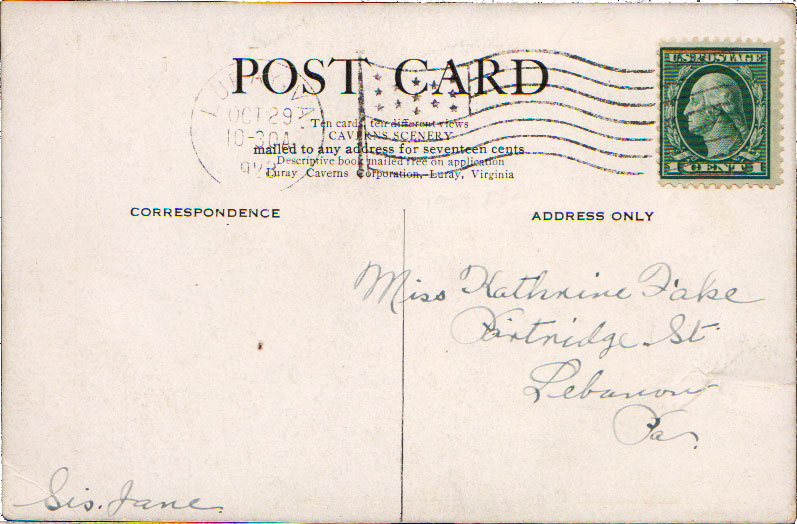 POST CARD
U.S. POSTAGE
1 CENT 1
LURAY, VA.
OCT 29
10-30A
Ten cards, ten different views
CAVERNS SCENERY
mailed to any address for seventeen cents
Descriptive book mailed free on application
Luray Caverns Corporation, Luray, Virginia
CORRESPONDENCE
ADDRESS ONLY
Miss Kathrine Fake
St
Lebanon
Pa.
Sis. Jane